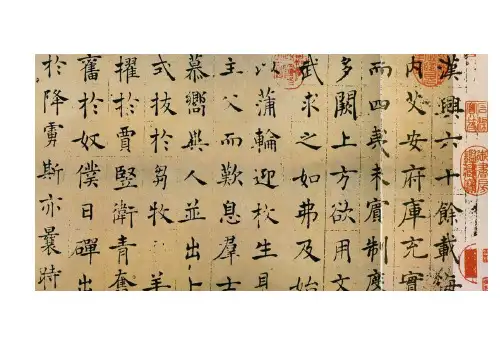 漢興六十餘載海
内乂安府庫充實
而四夷未賓制度
多闕上方欲用文
武求之如弗及始
以蒲輪迎枚生見
主父而歎息羣士
慕嚮異人並出卜
式拔於芻牧羊
擢於賈豎衛青奮
奮於奴僕日磾出
於降虜斯亦曩時